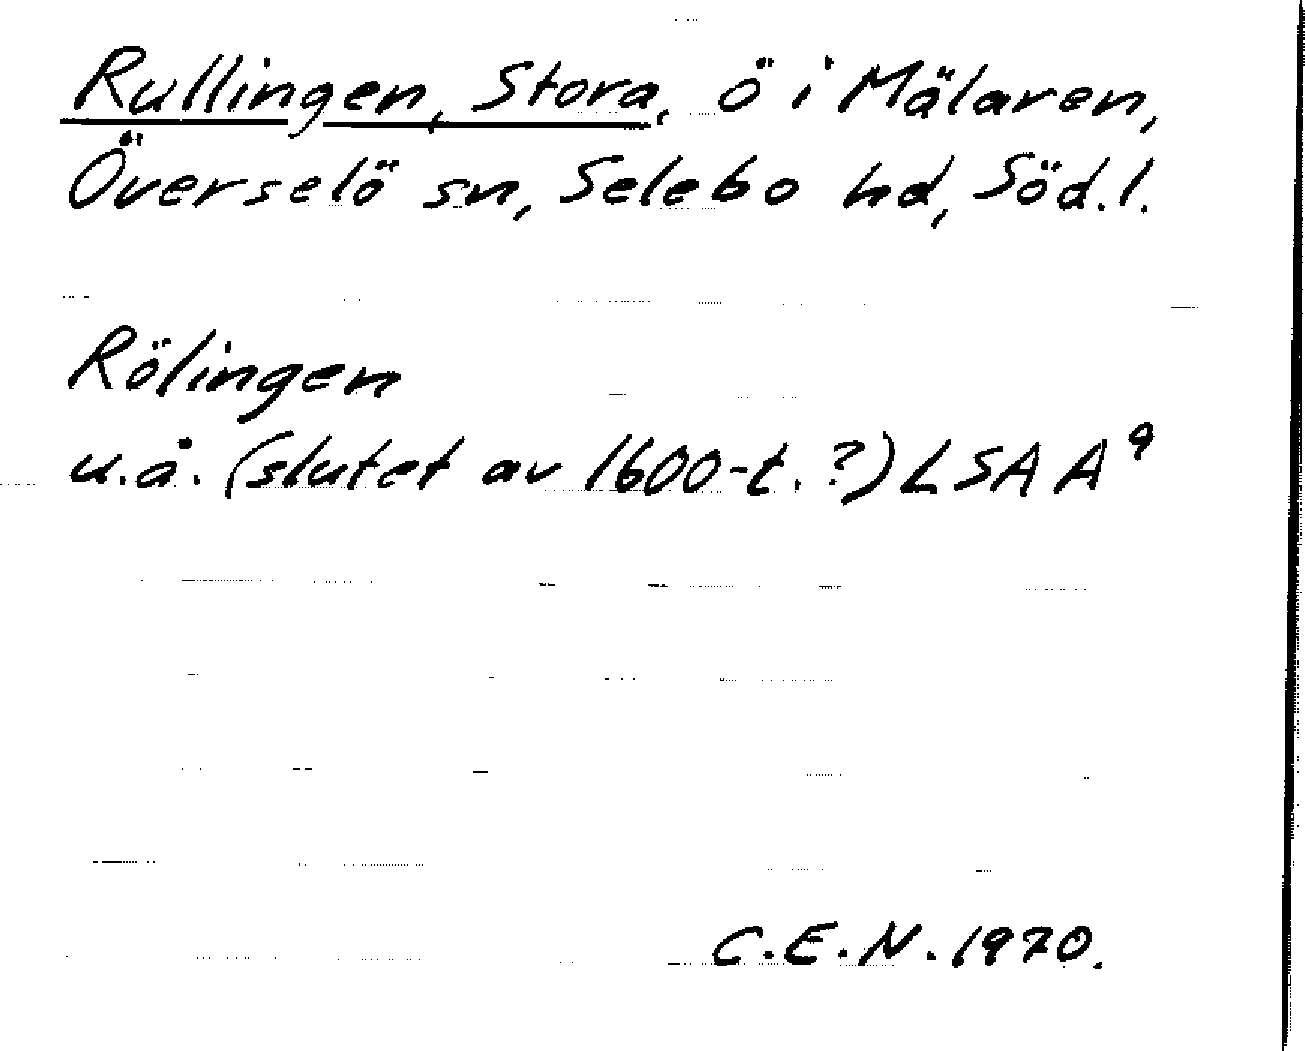 Rullingen, Stora, ö i Mälaren,
Överselö sn, Selebo hd, Söd.l.
Rölingen
u.å. (slutet av 1600-t.?) LSA A⁹
C.E.N. 1970.